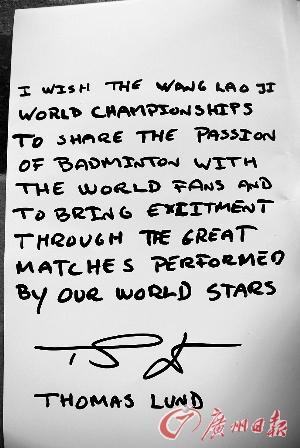 I WISH THE WANG LAO JI
WORLD CHAMPIONSHIPS
TO SHARE THE PASSION
OF BADMINTON WITH
THE WORLD FANS AND
TO BRING EXCITMENT
THROUGH THE GREAT
MATCHES PERFORMED
BY OUR WORLD STARS
THOMAS LUND
廣州日报